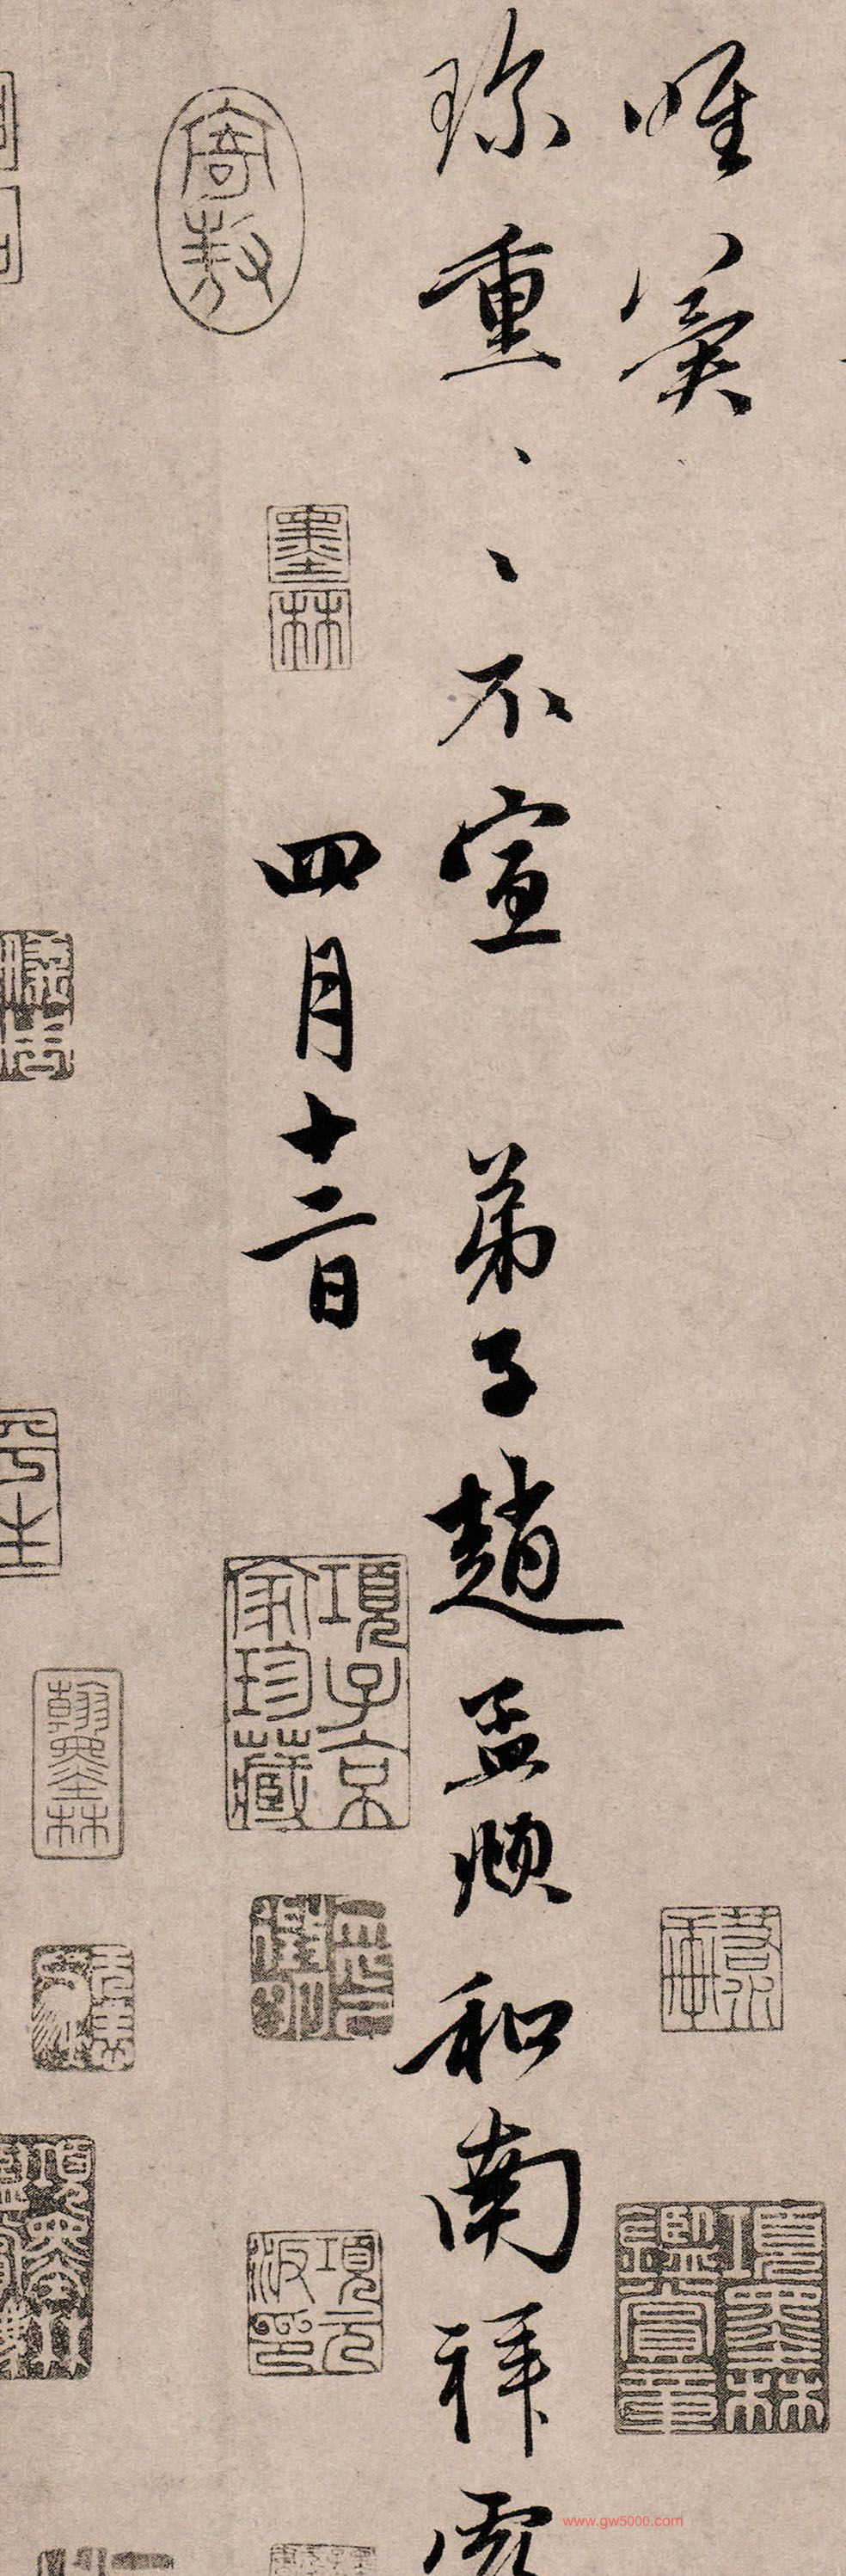 唯冀
珎重、、不宣 弟子趙孟頫和南拜
四月十二日
寄敖
墨林
項子京家珍藏
項元汴印
項墨林鑑賞章
www.gw5000.com